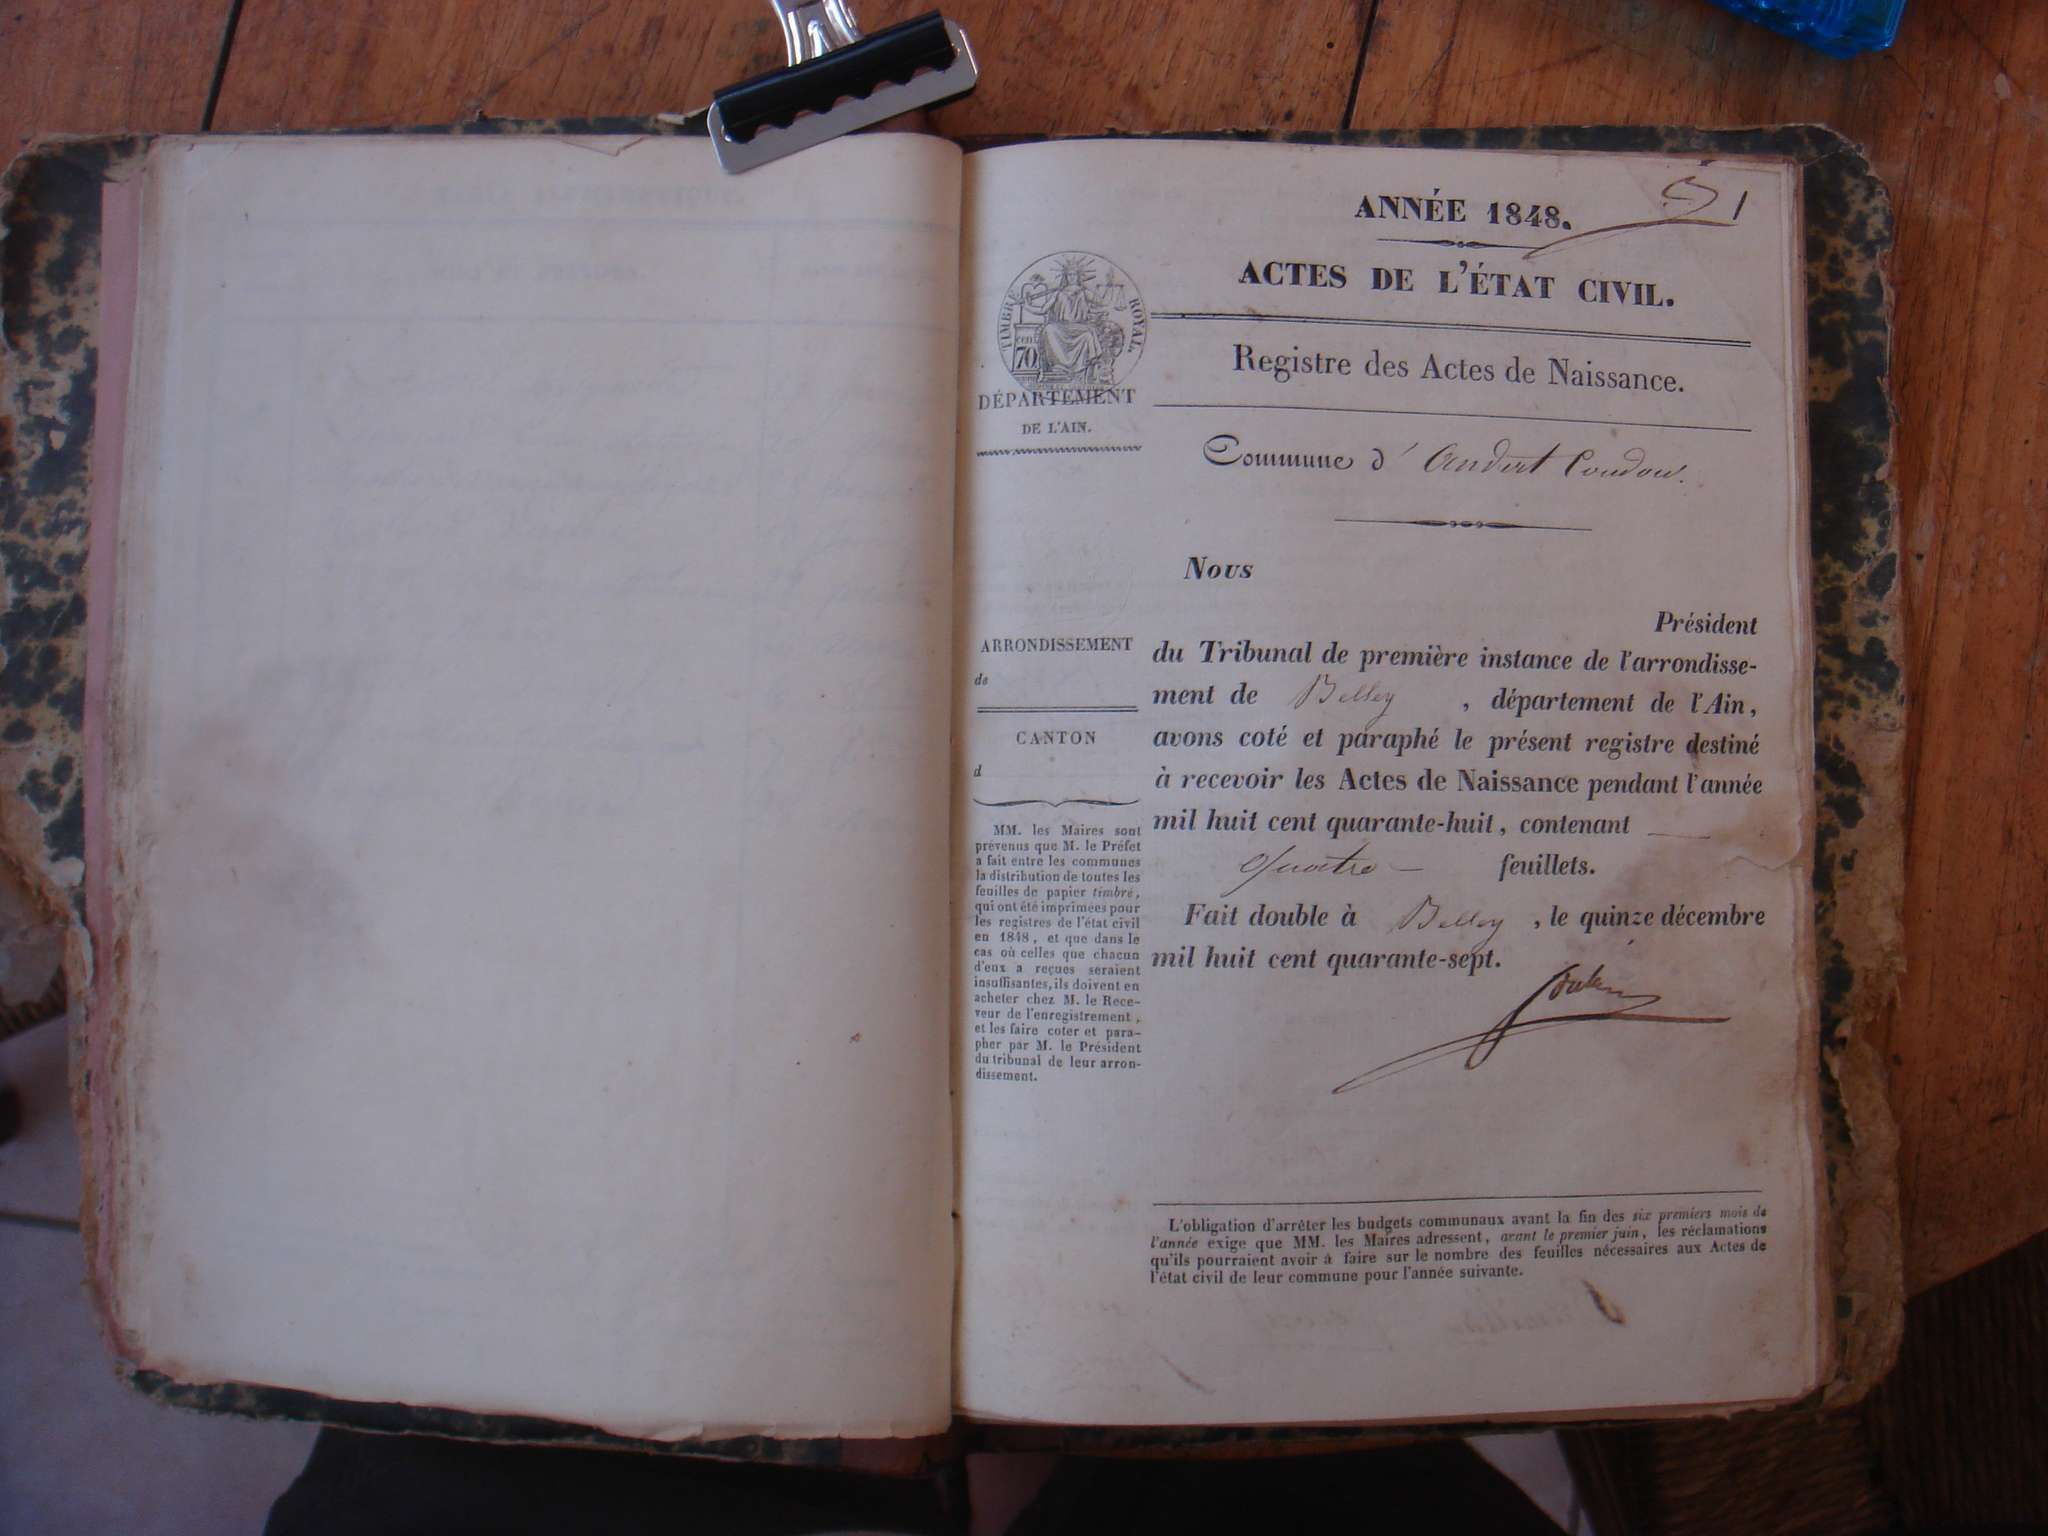 1
ANNÉE 1848.
ACTES DE L'ÉTAT CIVIL.
TIMBRE ROYAL.
70
Registre des Actes de Naissance.
DÉPARTEMENT
DE L'AIN.
Commune d' Andert Condon.
Nous
Président
du Tribunal de première instance de l'arrondisse-
ment de Belley , département de l'Ain,
avons coté et paraphé le présent registre destiné
à recevoir les Actes de Naissance pendant l'année
mil huit cent quarante-huit, contenant
quatre feuillets.
Fait double à Belley , le quinze décembre
mil huit cent quarante-sept.
ARRONDISSEMENT
de
CANTON
d
MM. les Maires sont
prévenus que M. le Préfet
a fait entre les communes
la distribution de toutes les
feuilles de papier timbré,
qui ont été imprimées pour
les registres de l'état civil
en 1848, et que dans le
cas où celles que chacun
d'eux a reçues seraient
insuffisantes, ils doivent en
acheter chez M. le Rece-
veur de l'enregistrement,
et les faire coter et para-
pher par M. le Président
du tribunal de leur arron-
dissement.
L'obligation d'arrêter les budgets communaux avant la fin des six premiers mois de
l'année exige que MM. les Maires adressent, avant le premier juin, les réclamations
qu'ils pourraient avoir à faire sur le nombre des feuilles nécessaires aux Actes de
l'état civil de leur commune pour l'année suivante.